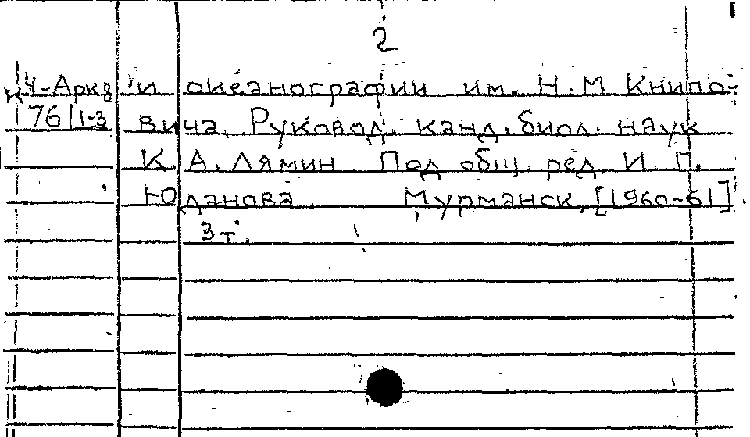 2
Ч-Аркв и океанографии им. Н. М. Книпо-
76/1-3 вича. Руковод. канд. биол. наук
К. А. Лямин Под общ. ред. И. Г.
Юданова. Мурманск, [1960-61].
3т.